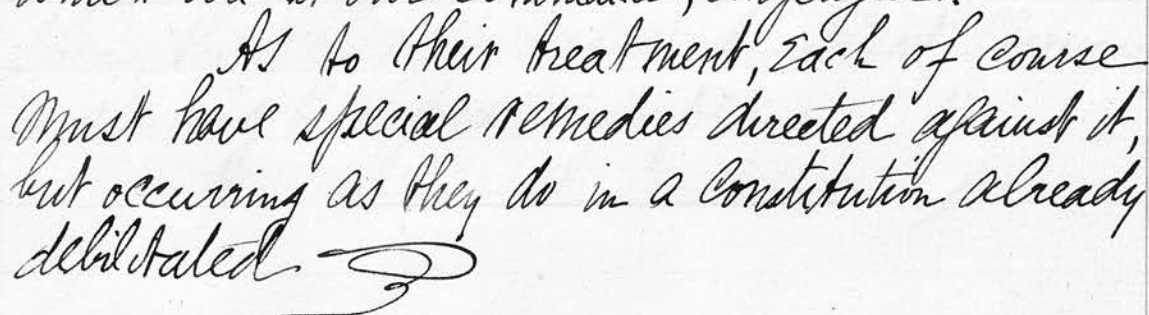 As to their treatment, Each of course
must have special remedies directed against it,
but occurring as they do in a Constitution already
debilitated